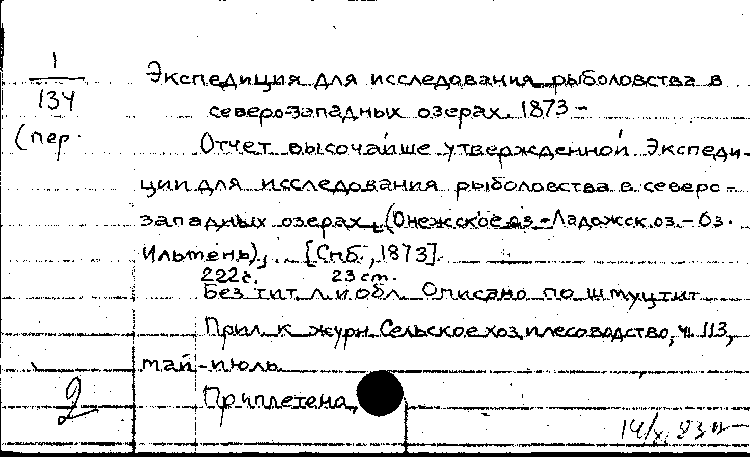 1
134
(пер.
Экспедиция для исследования рыболовства в
северо-западных озерах. 1873 -
Отчет высочайше утвержденной Экспеди-
ции для исследования рыболовства в северо-
западных озерах, (Онежское оз.-Ладожск. оз.-Оз.
Ильмень), [Спб., 1873].
222с. 23 ст.
Без тит. л. и обл. Описано по шмуцтит.
Прил. к журн. Сельское хоз. и лесоводство, ч. 113,
май-июль
Приплетена.
2
14/X. 83